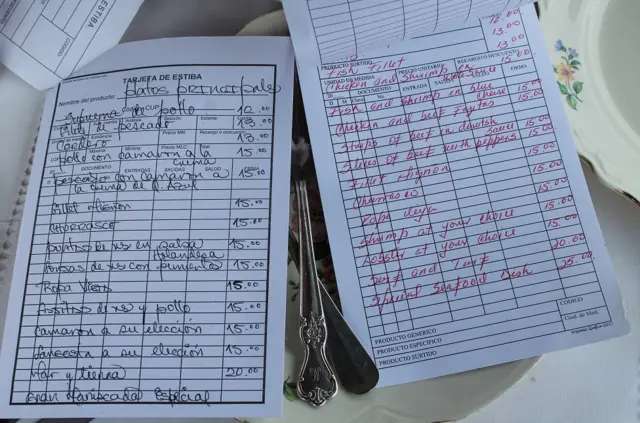 ESTIBA
CODIGO
TARJETA DE ESTIBA
Nombre del producto: Platos PRINCIPales
Suprema de pollo 12.00
Filete de pescado 13.00
Cordero 13.00
pollo con camaron a la crema 15.00
DOCUMENTO ENTRADAS SALIDAS SALDO FIRMA
pescado con camaron a 15.00
la crema de q. Azul
fillet Mignon 15.00
churrasco 15.00
puntas de res en salsa 15.00
Holandesa
Lonsas de res con pimientos 15.00
Ropa Vieja 15.00
Fajitas de res y pollo 15.00
Camaron a su elección 15.00
Langosta a su elección 15.00
Mar y tierra 20.00
Gran Mariscada Especial
15.00
13.00
13.00
PRODUCTO SURTIDO
Fish Fillet
Chicken and shrimp 15.00
UNIDAD DE MEDIDA PRECIO UNITARIO RECARGO O DESCUENTO
DOCUMENTO ENTRADA SALIDA SALDO FIRMA
Fish and shrimp in blue cheese 15.00
Chicken and beef Fajitas 15.00
Straps of beef in dowitsh sauce 15.00
Slices of beef with peppers 15.00
Fillet Mignon 15.00
Churrasco 15.00
Ropa vieja 15.00
Shrimp at your choice 15.00
Lobster at your choice 15.00
Surf and Turf 20.00
Special Seafood Dish 25.00
CODIGO
PRODUCTO GENERICO
Unid. de Med.
PRODUCTO ESPECIFICO
PRODUCTO SURTIDO